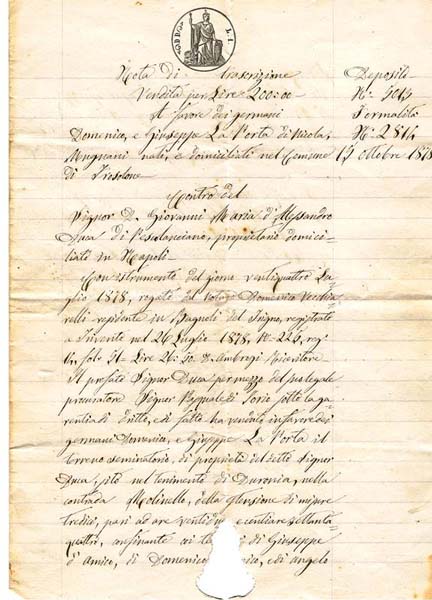 Nota di trascrizione
Vendita per Lire 200:00
A favore dei germani
Domenico, e Giuseppe La Porta di Nicola,
Mugnani nati, e domiciliati nel Comune
di Frosolone
Deposito
N.
Formalità
N. 2814
17 ottobre 1878
Contro del
Signor D. Giovanni Maria d'Alessandro
Duca di Pescolanciano, proprietario domici-
liato in Napoli
Con istrumento del giorno ventiquattro Lu-
glio 1878, rogato dal Notar Domenico
residente in Bagnoli del Trigno, registrato
a Trivento nel 26 Luglio 1878,
Lire Ambrogi Ricevitore
Il prefato Signor Duca per mezzo del suo legale
procuratore Signor Pasquale di Iorio sotto la ga-
rentia di dritto, e di fatto ha venduto in favore dei
germani Domenico, e Giuseppe La Porta il
terreno seminatorio, di proprietà del detto Signor
Duca, sito nel tenimento di Duronia, nella
contrada Molinello, della estensione di misure
tredici, pari ad are e centiare settanta
quattro, confinante ai di Giuseppe
d'Amico, di Domenico e di Angelo